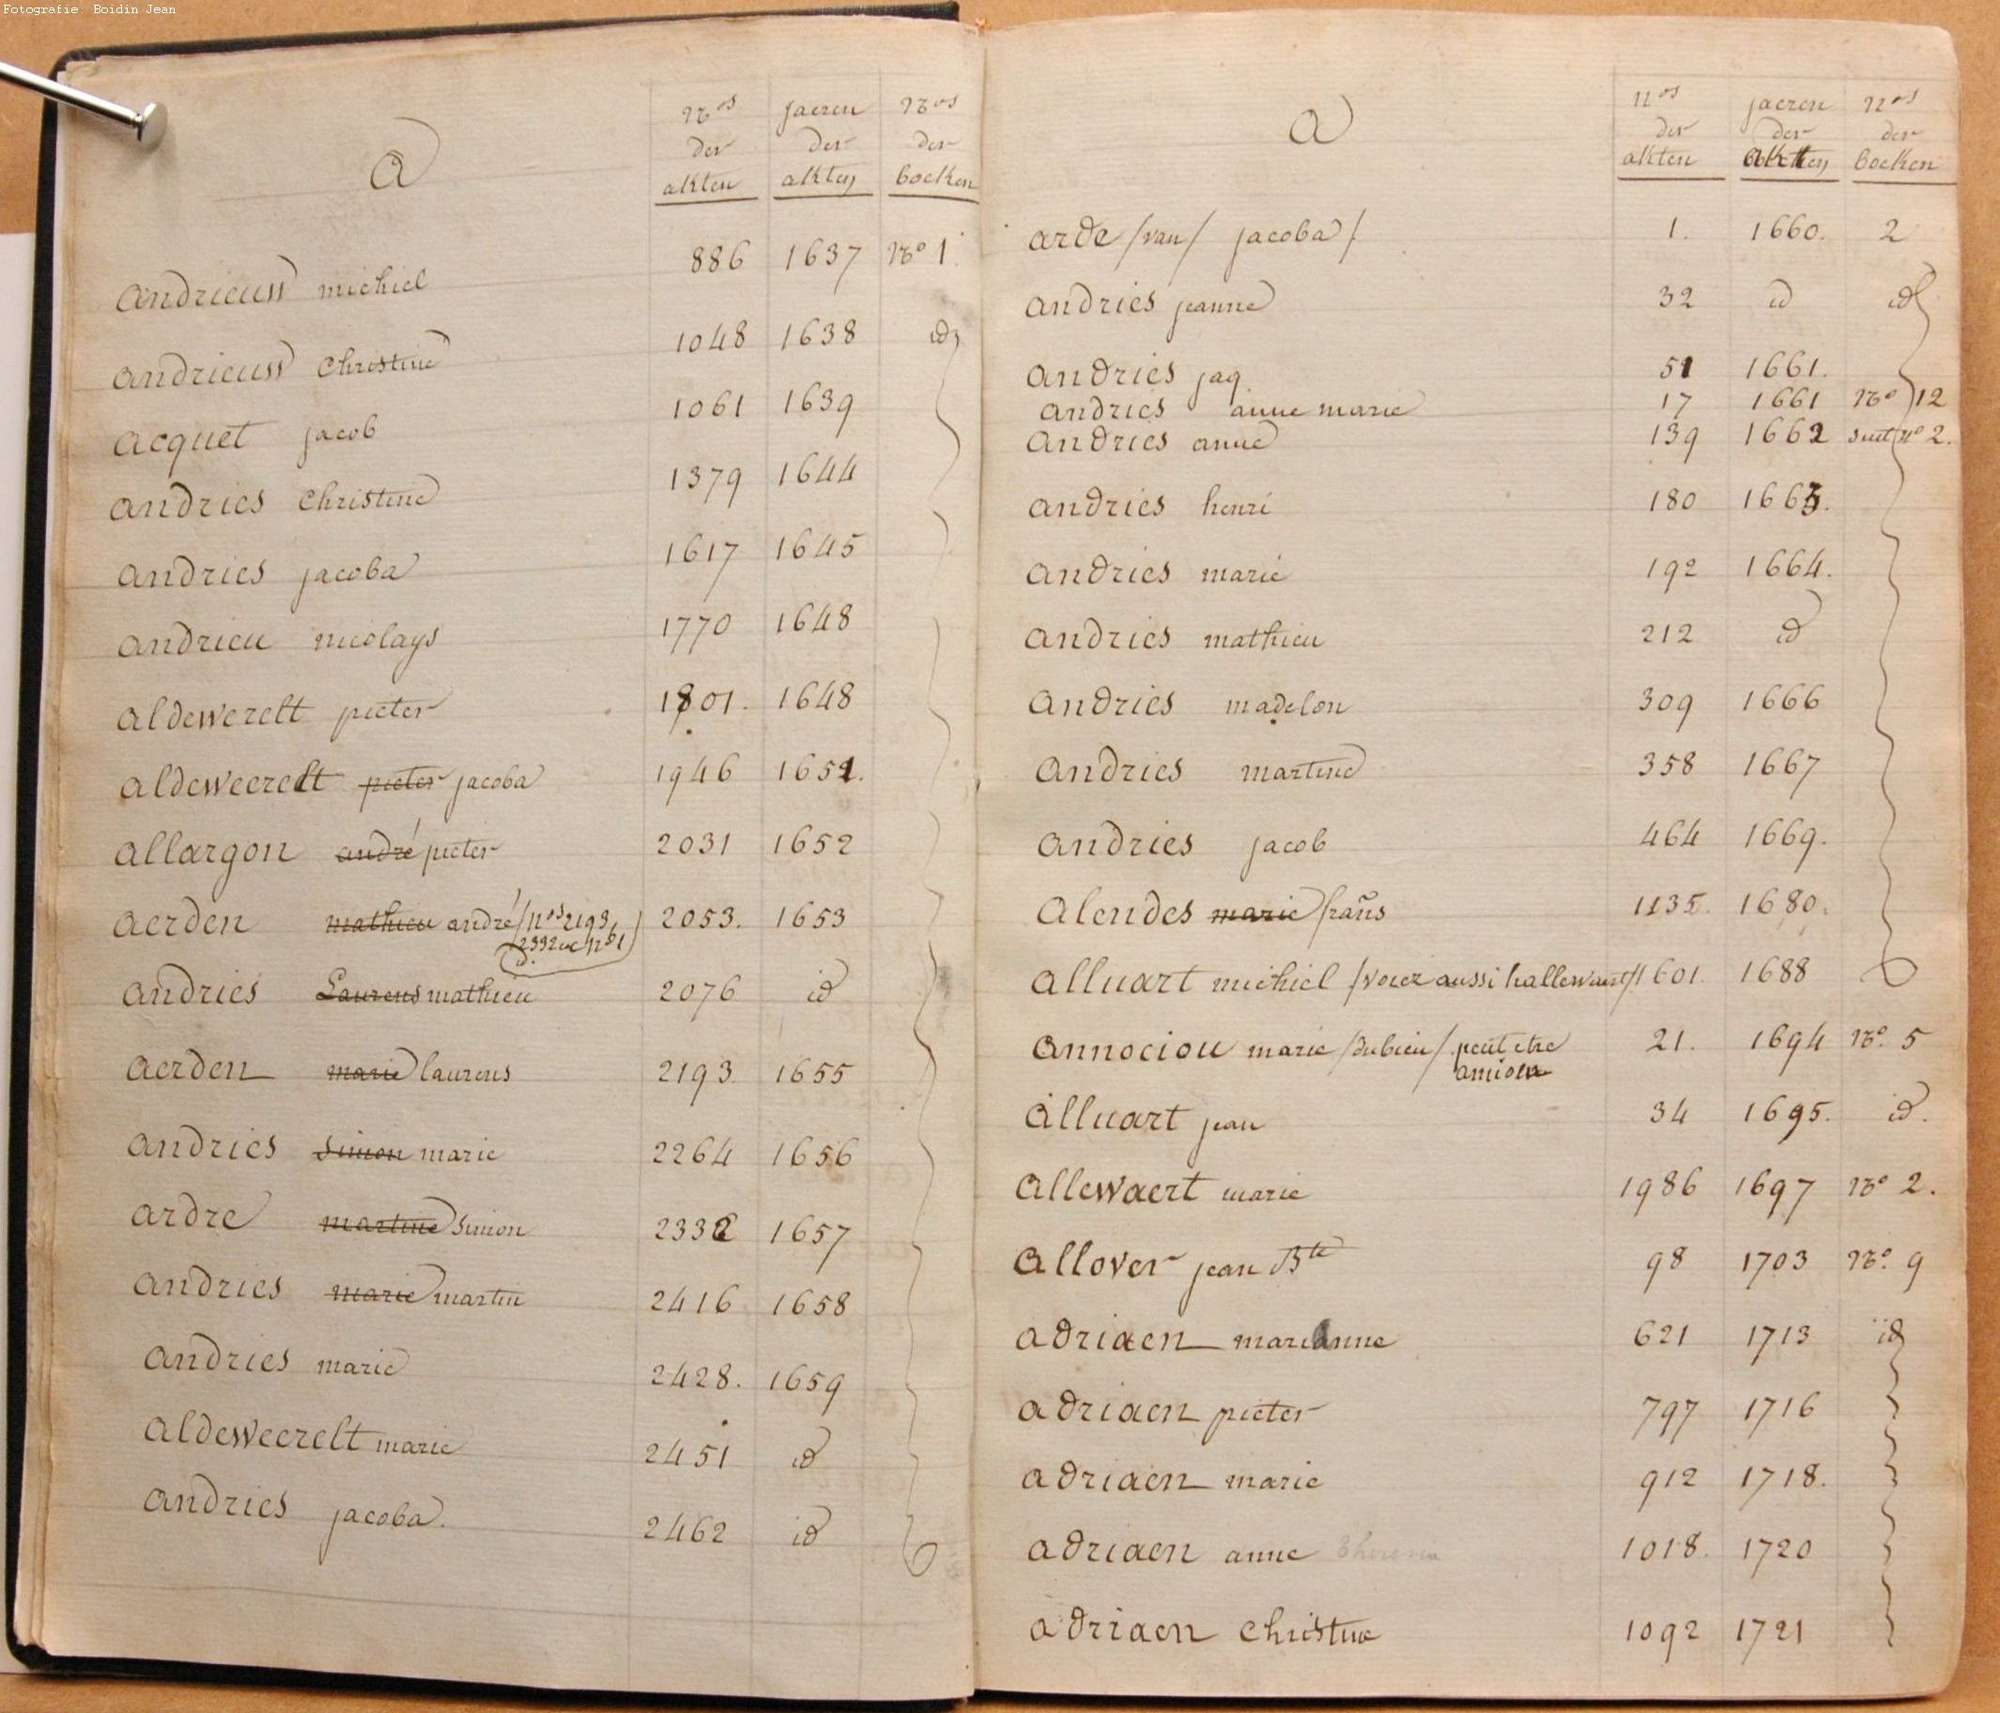 Fotografie: Boidin Jean
a
Nos jaeren Nos
der der der
akten akten boeken
andrieuss michiel 886 1637 No 1.
andrieuss Christine 1048 1638 id
acquet jacob 1061 1639
andries Christine 1379 1644
andries jacoba 1617 1645
andrieu nicolays 1770 1648
aldewerelt pieter 1801. 1648
aldeweerelt pieter jacoba 1946 1651.
allargon andré pieter 2031 1652
aerden mathieu andré (nos 2193, 2053. 1653
2332 no 1
id.
andries Laurens mathieu 2076 id
aerden marie laurens 2193 1655
andries Simon marie 2264 1656
ardre martine Simon 2332 1657
andries marie martin 2416 1658
andries marie 2428. 1659
aldeweerelt marie 2451 id
andries jacoba. 2462 id
a
nos jaeren nos
der der der
akten akten boeken
arde /van/ jacoba/ 1. 1660. 2
andries jeanne 32 id id
andries jaq. 51 1661.
andries anne marie 17 1661 No 12
andries anne 139 1662 suit no 2.
andries henri 180 1663.
andries marie 192 1664.
andries mathieu 212 id
andries madelon 309 1666
andries martine 358 1667
andries jacob 464 1669.
alendes marie frans 1135. 1680.
alluart michiel /voiez aussi hallewaert/ 1601. 1688
annociou marie /dubieu/ peut etre 21. 1694 No. 5
amiou
alluart jean 34 1695. id.
allewaert marie 1986 1697 No 2.
allover jean Bte 98 1703 No. 9
adriaen marianne 621 1713 id
adriaen pieter 797 1716
adriaen marie 912 1718.
adriaen anne 1018. 1720
adriaen Christine 1092 1721